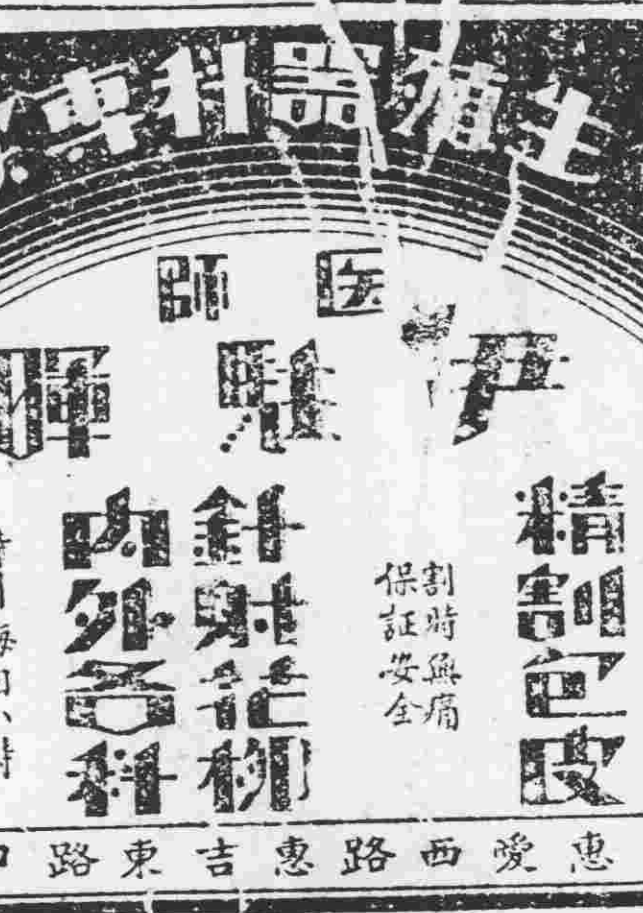 生殖器科專
医師
尹
精割包皮
割時無痛
保証安全
針射花柳
內外各科
惠愛西路惠吉東路